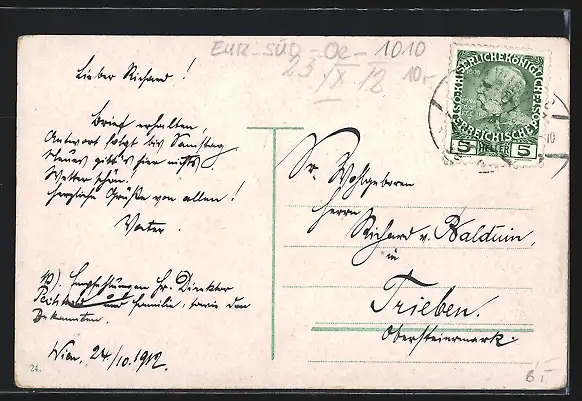 EUR-SÜD-Oe-1010
23/IX/12 10,-
Lieber Richard!
Brief erhalten,
Antwort folgt bis Samstag
Neues gibt's hier nichts.
Wetter schön.
Herzliche Grüße von allen!
Vater.
Empfehlungen Hr. Direktor
und Familie, sowie den
Bekannten.
Wien, 24./10. 1912.
24.
KAISERLICHE KÖNIGLICHE
ÖSTERREICHISCHE
5 HELLER 5
Sr. Wohlgeboren
Herrn
Richard v. Balduin,
in
Trieben.
Obersteiermark.
6.-